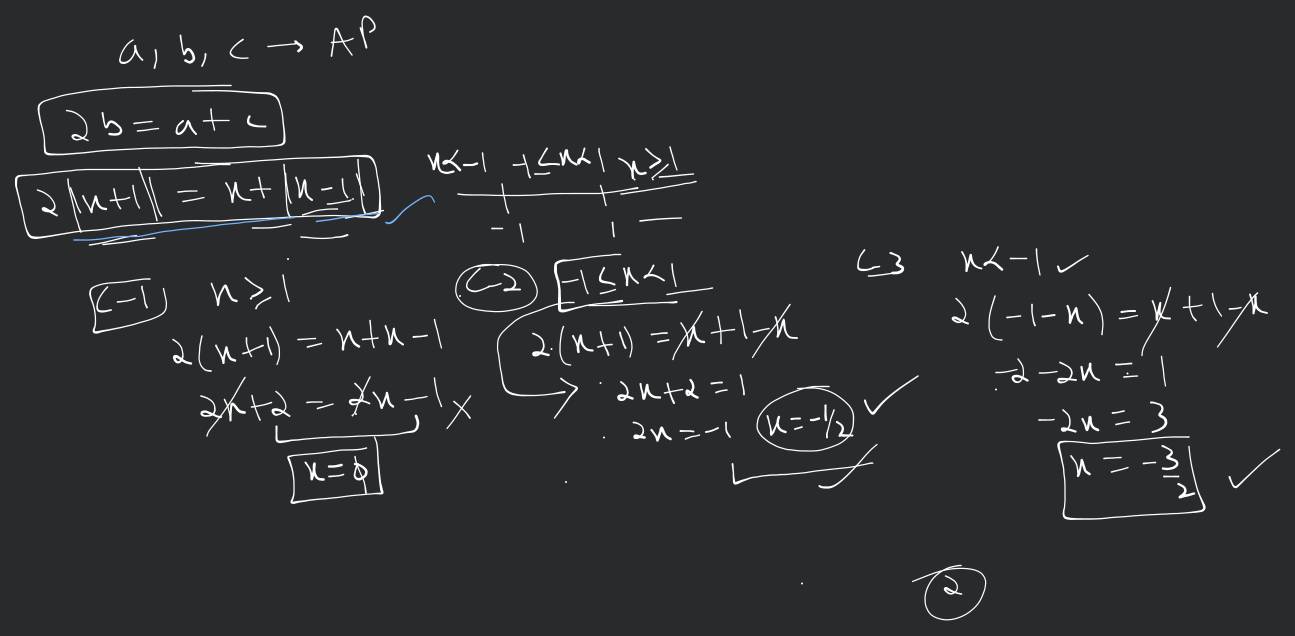 a, b, c → AP
2b = a + c
2|x+1| = x + |x-1|
x<-1 -1≤x<1 x≥1
-1 1
C-1 x≥1
2(x+1) = x+x-1
2x+2 = 2x-1 ×
x=ϕ
C-2 -1≤x<1
2.(x+1) = x+1-x
2x+2 = 1
2x = -1 x=-1/2 ✓
C-3 x<-1 ✓
2(-1-x) = x+1-x
-2-2x = 1
-2x = 3
x = -3/2 ✓
2